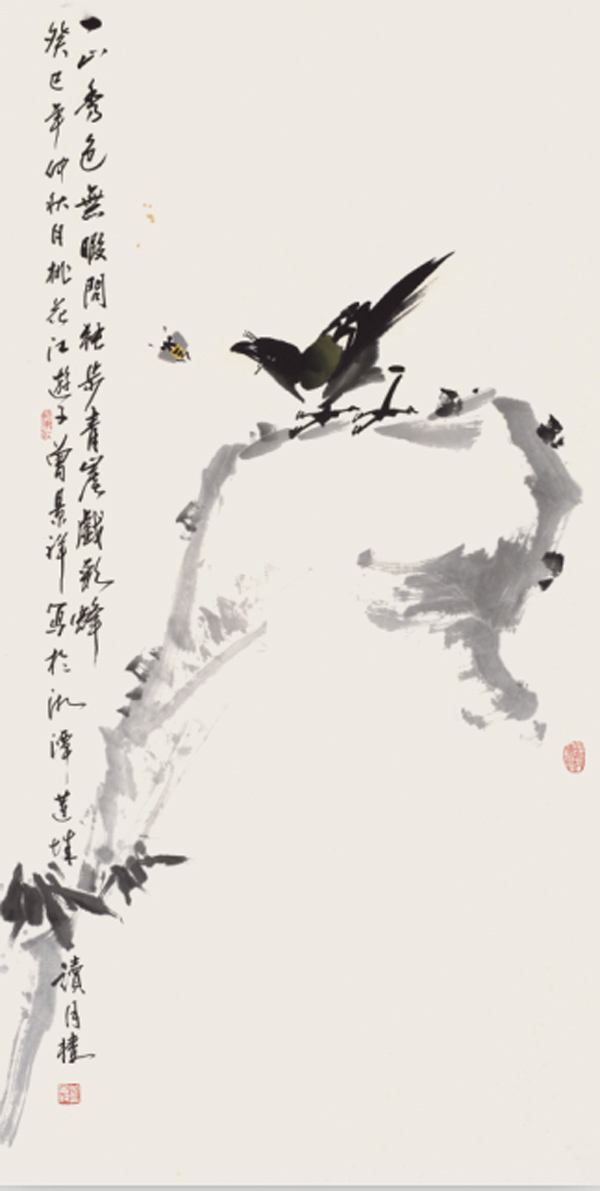 一山秀色無暇問獨步青崖戲歌蜂
癸巳年仲秋月桃花江遊子曾景祥寫於湘潭蓮城
讀月樓